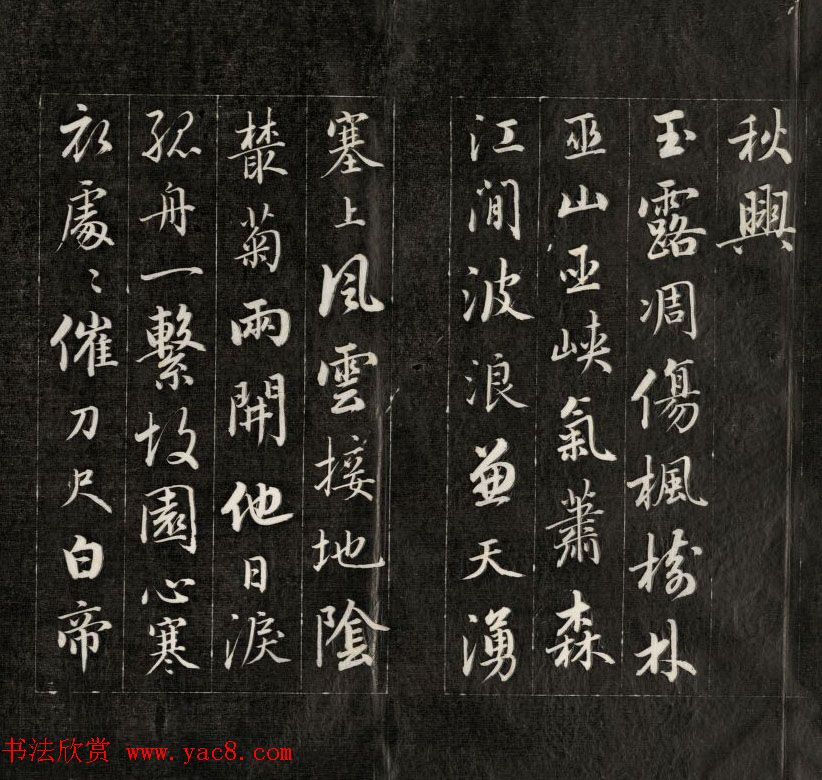 秋興
玉露凋傷楓樹林
巫山巫峽氣蕭森
江間波浪兼天湧
塞上風雲接地陰
叢菊兩開他日淚
孤舟一繫故園心寒
衣處〻催刀尺白帝
书法欣赏 www.yac8.com